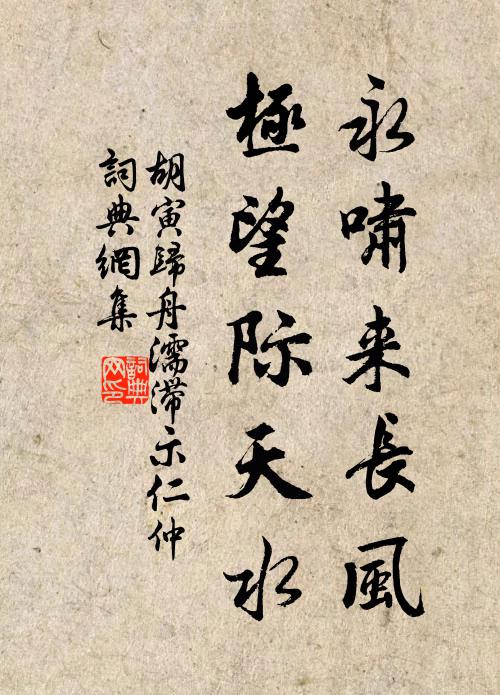 永嘯来長風
極望际天水
胡寅歸舟濡滞示仁仲
詞典網集
詞典网印